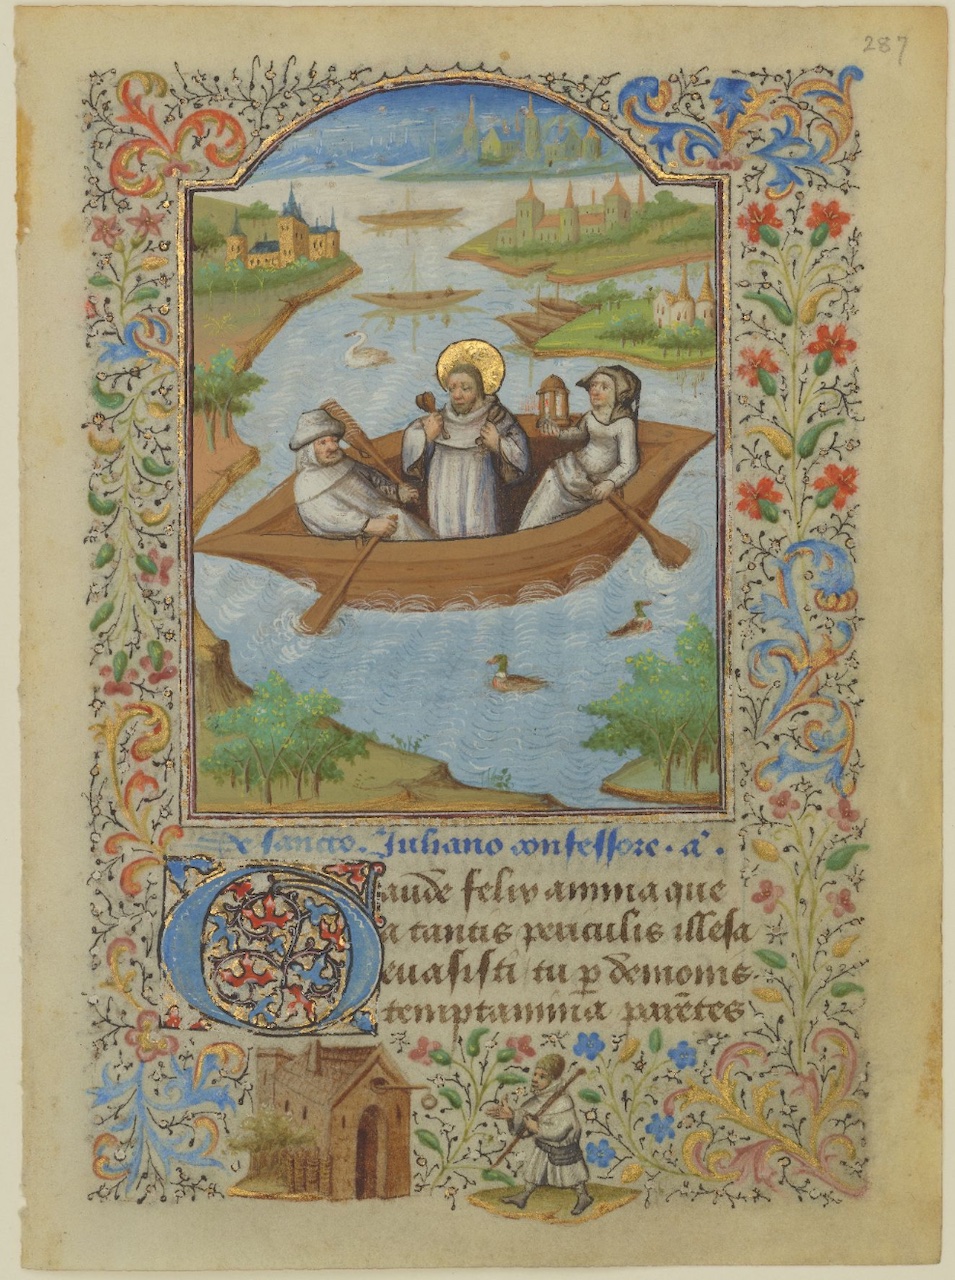 287
De sancto Juliano confessore . aͣ .
Gaudē felix amma que
a tantis periculis illesa
euasisti tu ꝑ demonis
temptamina parētes